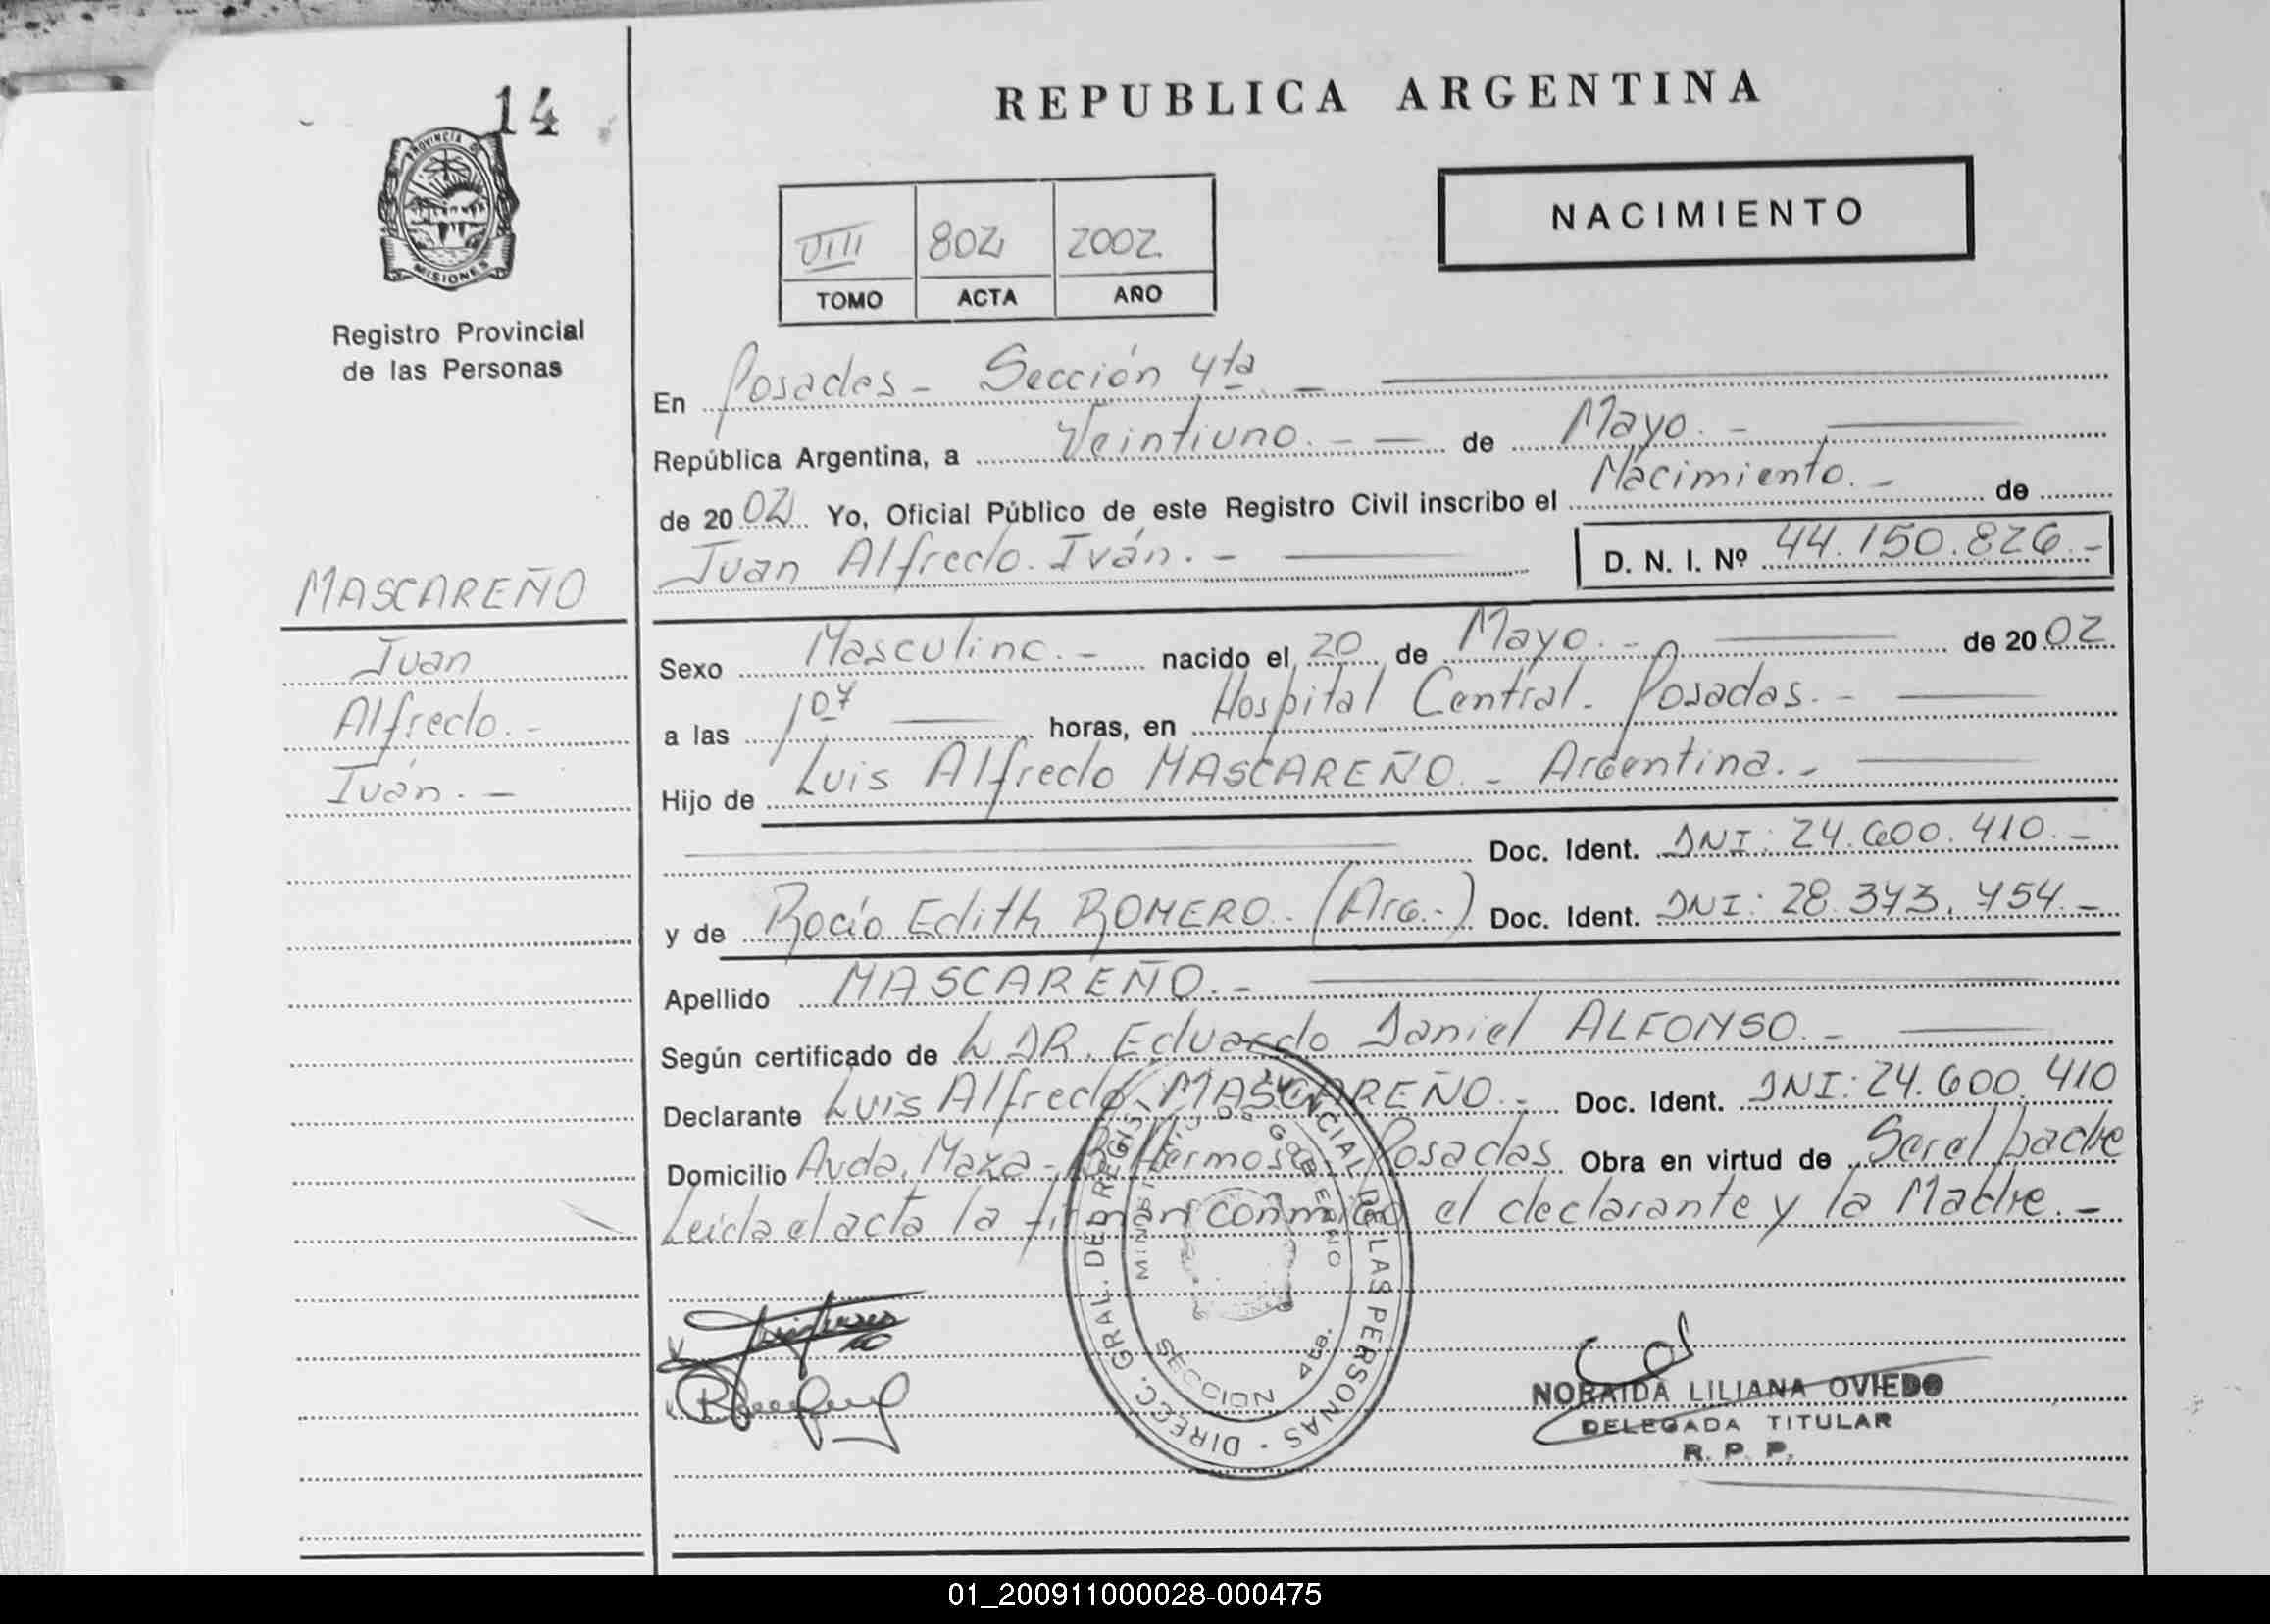 14
PROVINCIA DE
MISIONES
Registro Provincial
de las Personas
REPUBLICA ARGENTINA
NACIMIENTO
VIII 802 2002
TOMO ACTA AÑO
En Posadas - Sección 4ta. -
República Argentina, a Veintiuno. - - de Mayo. -
de 2002 Yo, Oficial Público de este Registro Civil inscribo el Nacimiento. - de
Juan Alfredo. Iván. - D. N. I. Nº 44.150.826.-
MASCAREÑO
Juan
Alfredo. -
Iván. -
Sexo Masculino. - nacido el 20 de Mayo. - de 2002
a las 1 07 horas, en Hospital Central. Posadas. -
Hijo de Luis Alfredo MASCAREÑO. - Argentina. -
Doc. Ident. DNI: 24.600.410. -
y de Rocío Edith ROMERO. (Arg.-) Doc. Ident. DNI: 28.373.754. -
Apellido MASCAREÑO. -
Según certificado de DR. Eduardo Daniel ALFONSO. -
Declarante Luis Alfredo MASCAREÑO. - Doc. Ident. DNI: 24.600.410
Domicilio Avda. Maza - Bº Hermoso Posadas Obra en virtud de Ser el padre
Leída el acta la firman conmigo el declarante y la Madre. -
DIREC. GRAL. DEL REGISTRO PROVINCIAL DE LAS PERSONAS -
MINISTERIO DE GOBIERNO
SECCION 4ta.
NORAIDA LILIANA OVIEDO
DELEGADA TITULAR
R. P. P.
01_200911000028-000475